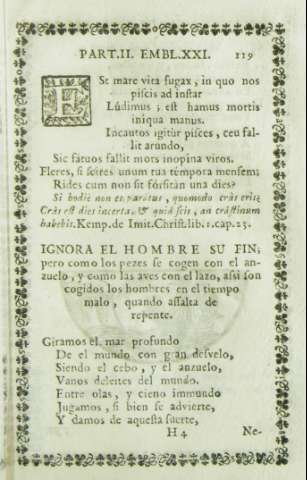 PART.II. EMBL.XXI. 119
ESt mare vita fugax, in quo nos
piscis ad instar
Lúdimus; est hamus mortis
iniqua manus.
Incautos igitùr pisces, ceu fal-
lit arundo,
Sic fatuos fallit mors inopina viros.
Fleres, si scires unum tua témpora mensem;
Rides cum non sit fórsitàn una dies?
Si hodiè non es paratus, quomodo cràs eris?
Cràs est dies incerta, & quid scis, an crástinum
habebis. Kemp. de Imit. Christ. lib. 1. cap. 23.
IGNORA EL HOMBRE SU FIN;
pero como los pezes se cogen con el an-
zuelo, y como las aves con el lazo, assi son
cogidos los hombres en el tiempo
malo, quando assalta de
repente.
Giramos el mar profundo
De el mundo con gran desvelo,
Siendo el cebo, y el anzuelo,
Vanos deleites del mundo.
Entre olas, y cieno immundo
Jugamos, si bien se advierte,
Y damos de aquesta suerte,
H 4 Ne-